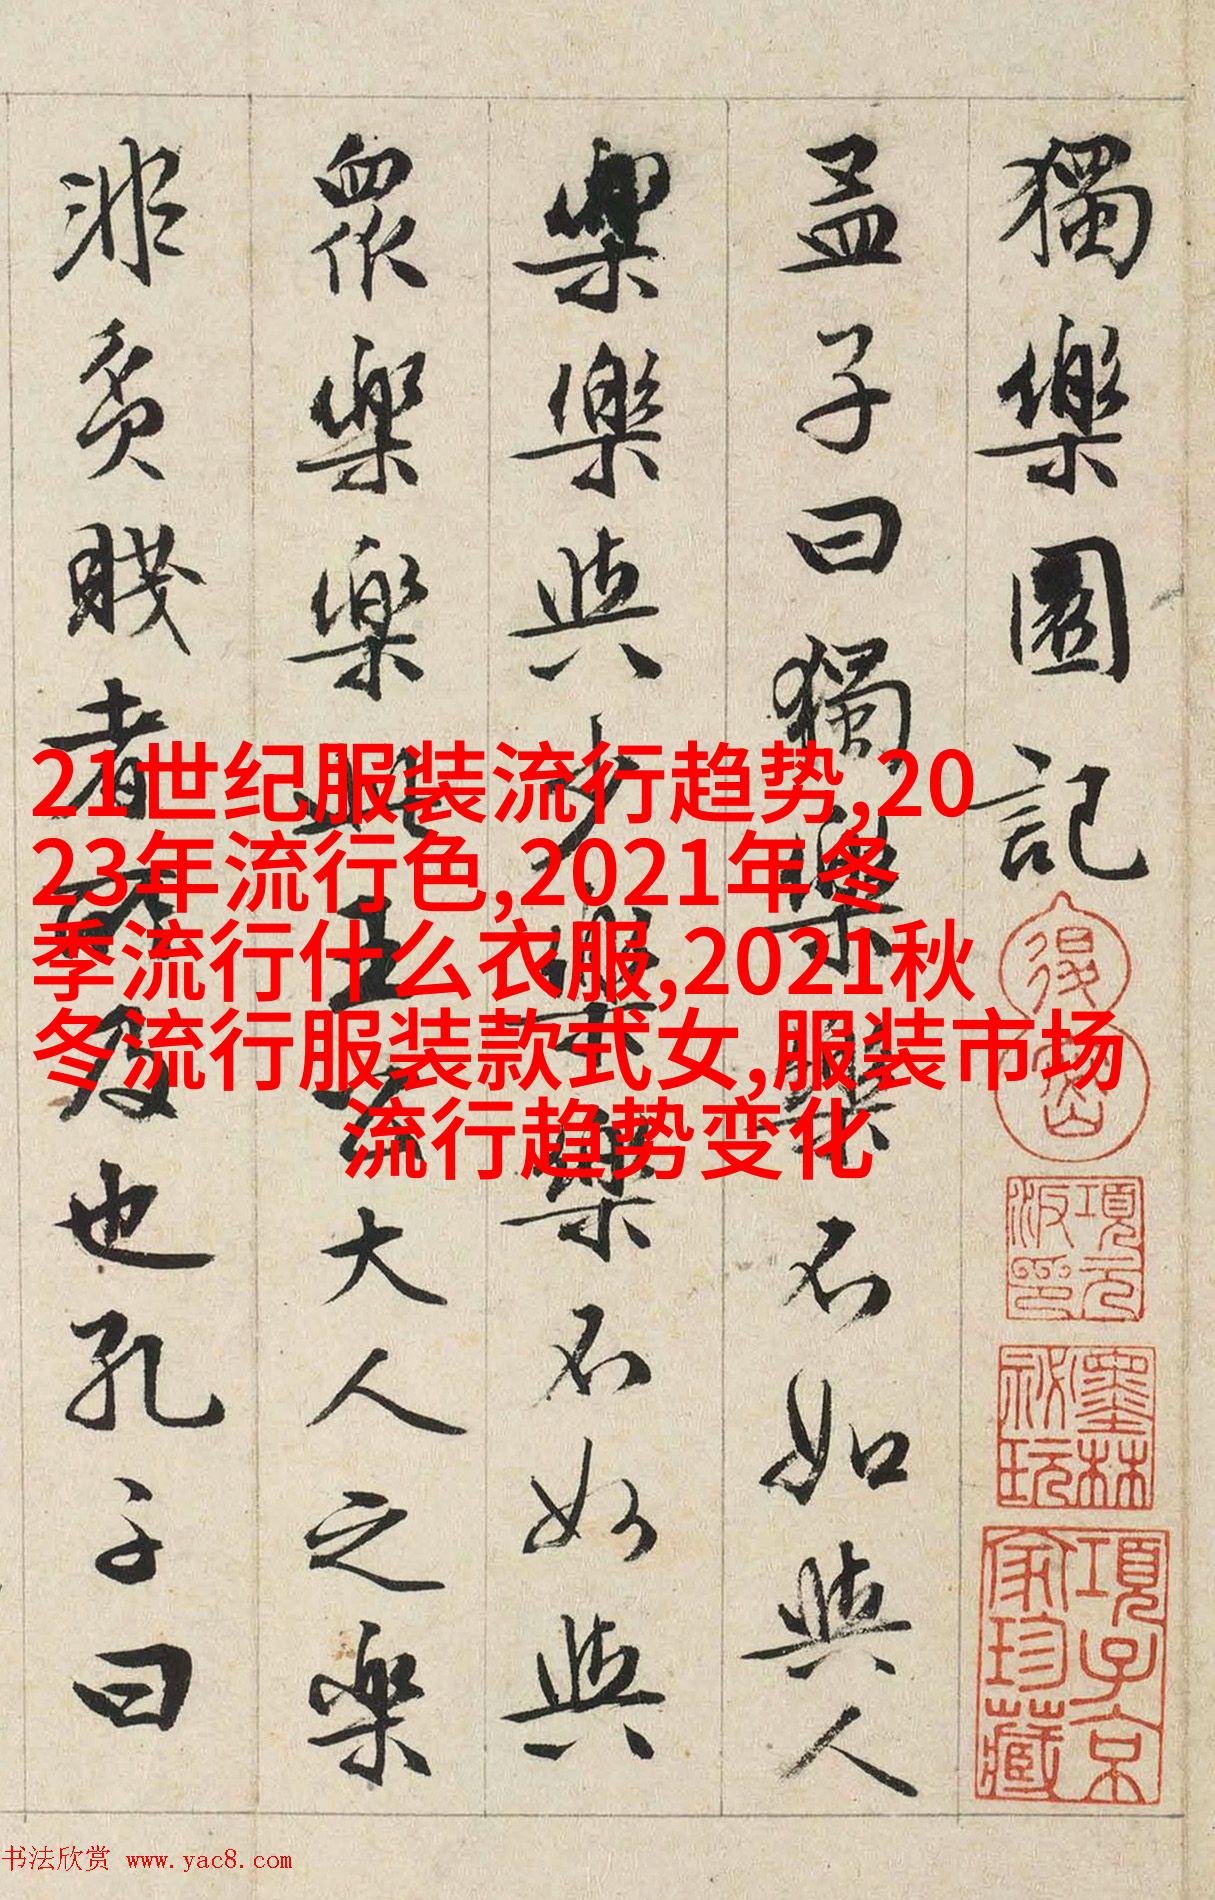 獨樂園記
孟子曰獨樂樂不如與人
樂樂與少樂樂不如與
衆樂樂此王公大人之樂
非貧賤者所及也孔子曰
21世纪服装流行趋势,20
23年流行色,2021年冬
季流行什么衣服,2021秋
冬流行服装款式女,服装市场
流行趋势变化
項元汴印
墨林祕玩
項子京家珍藏
书法欣赏 www.yac8.com